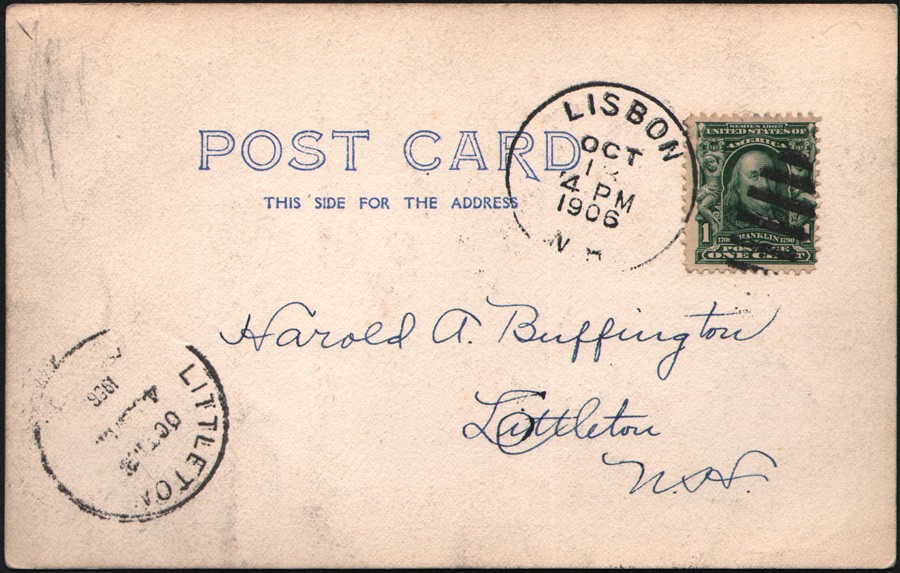 POST CARD
THIS SIDE FOR THE ADDRESS
LISBON
OCT
4 PM
1906
N H
SERIES 1902
UNITED STATES OF
AMERICA
1 FRANKLIN 1790 1
POSTAGE
ONE CENT
Harold A. Buffington
Littleton
N.H.
LITTLETON
OCT
1906